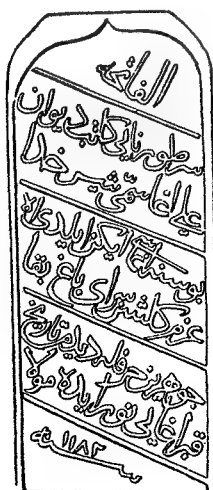 الفاتحه
سر طورنايي كاتب ديوان
علي اغا سمي شير خدا
بوسنه اغاسي ايكن ايلدي اه
عزم كلشنسراي باغ بقا
جوهرين حرفله ديدم تاريخ
قبر اغايي نور ايده مولا
سنه ١١٨٢